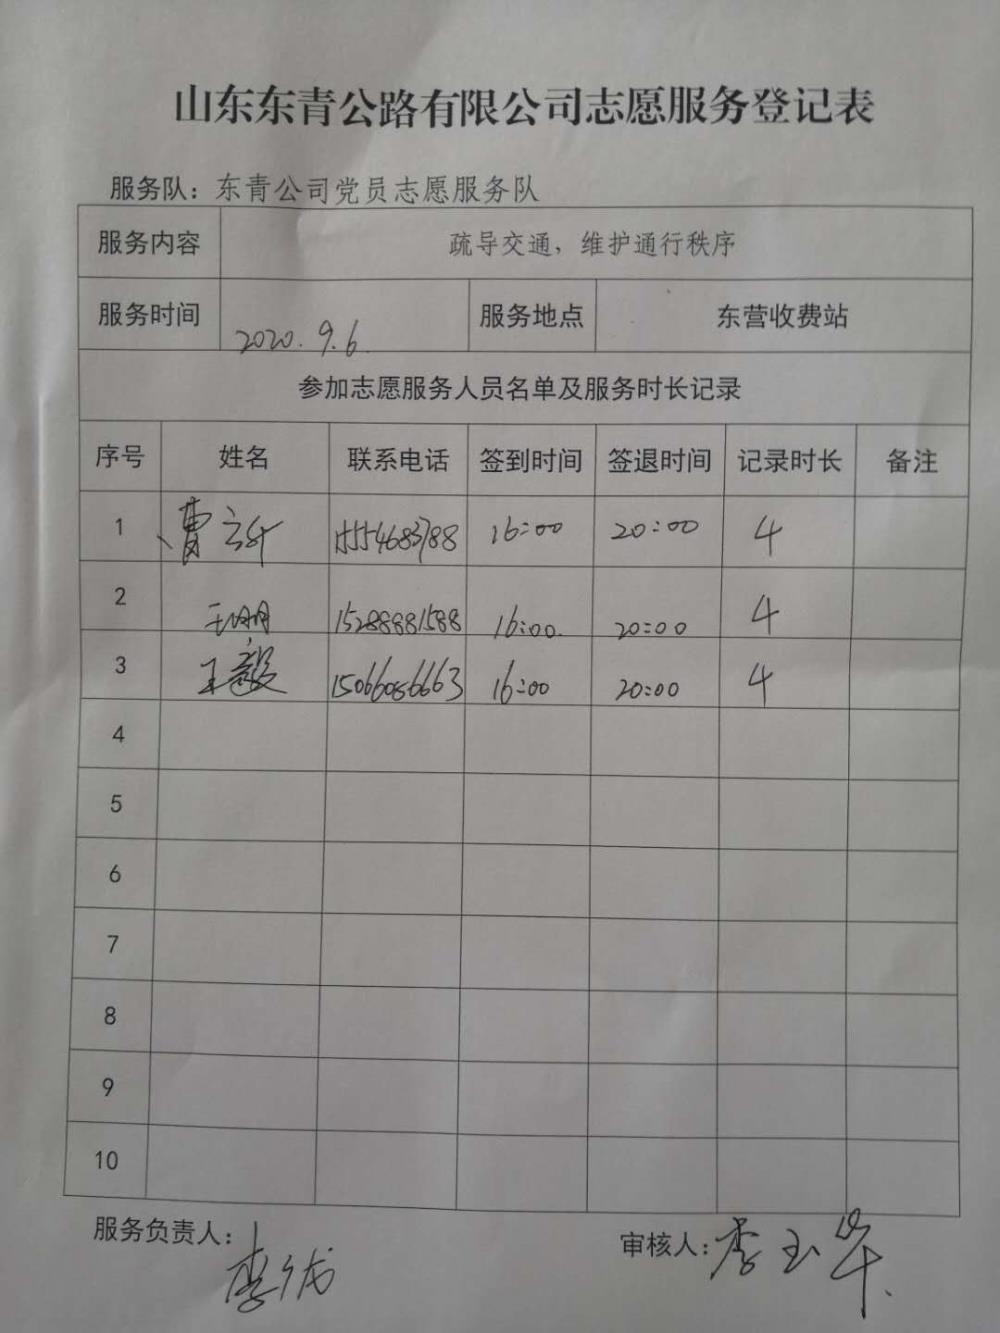 山东东青公路有限公司志愿服务登记表
服务队：东青公司党员志愿服务队
服务内容 疏导交通，维护通行秩序
服务时间 2020.9.6. 服务地点 东营收费站
参加志愿服务人员名单及服务时长记录
序号 姓名 联系电话 签到时间 签退时间 记录时长 备注
1 曹 15554683788 16:00 20:00 4
2 15288881588 16:00. 20:00 4
3 王毅 15066086663 16:00 20:00 4
4
5
6
7
8
9
10
服务负责人： 审核人：李玉华